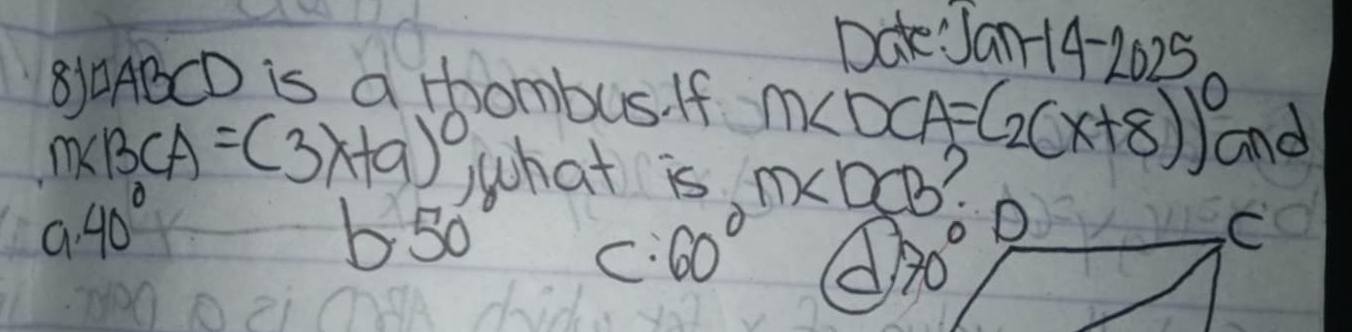 Date: Jan-14-2025
8) □ABCD is a rhombus. If m<DCA=(2(x+8))° and
m<BCA=(3x+9)°, what is m<DCB?
a. 40° b. 50° c. 60° d. 70°
D C